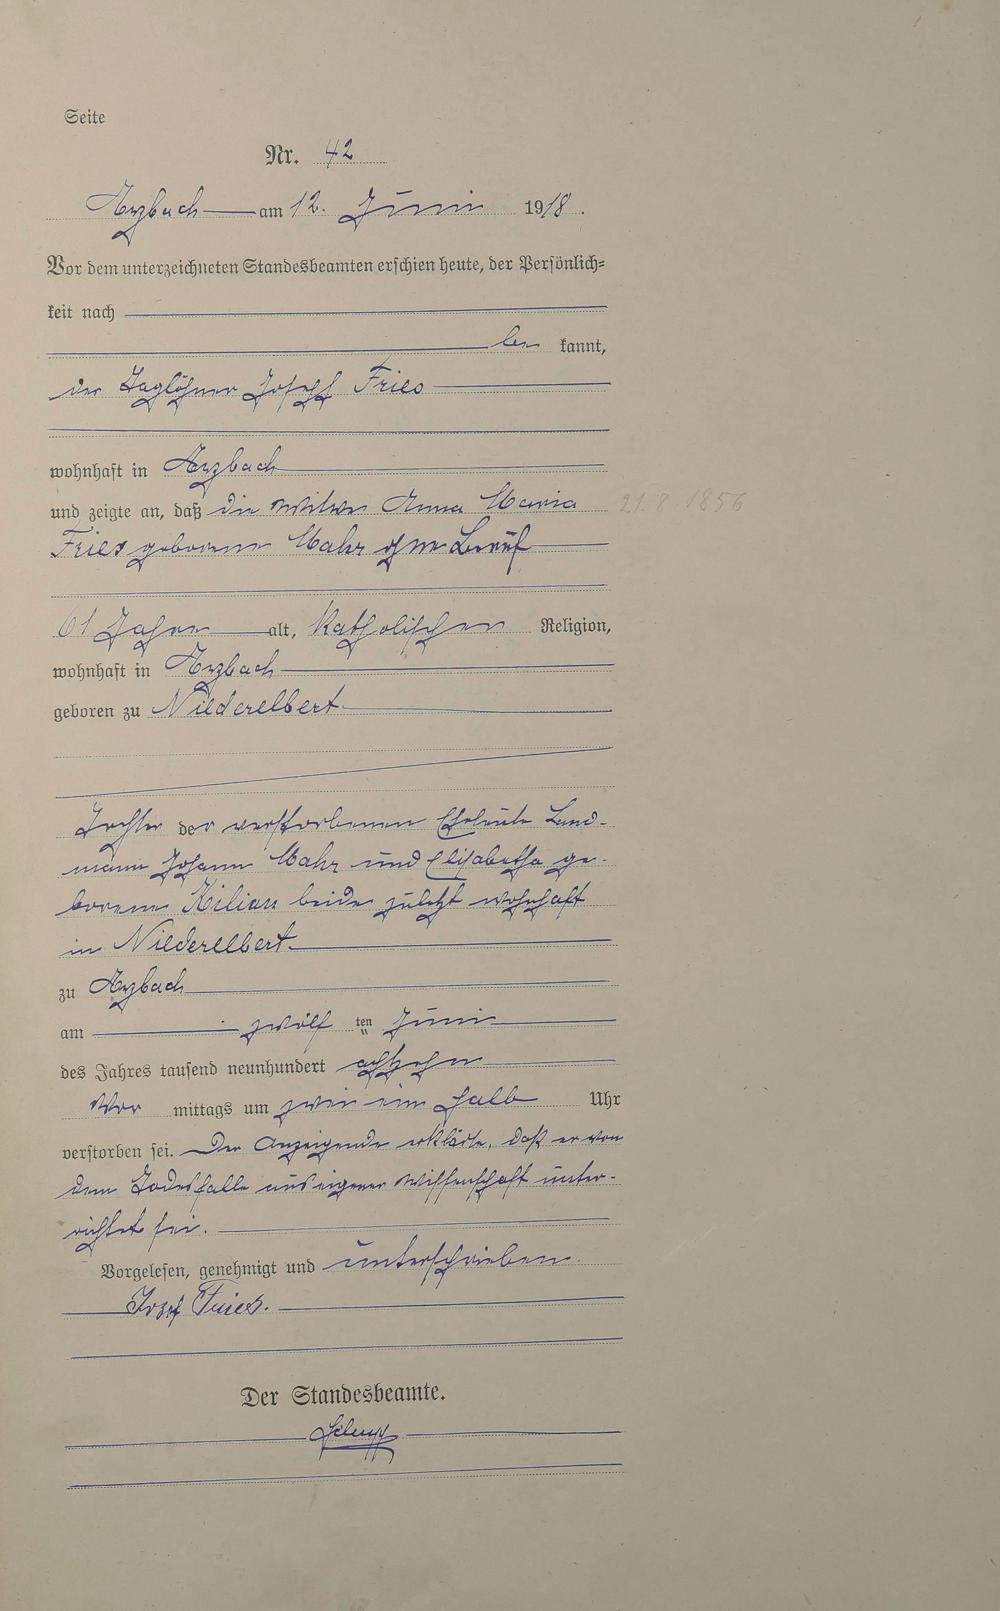 Seite
Nr. 42
Arzbach am 12. Juni 1918.
Vor dem unterzeichneten Standesbeamten erschien heute, der Persönlich=
keit nach
be kannt,
der Taglöhner Joseph Fries
wohnhaft in Arzbach
und zeigte an, daß die Witwe Anna Maria 21.8 1856
Fries geborene Mahr ohne Beruf
61 Jahre alt, katholischen Religion,
wohnhaft in Arzbach
geboren zu Niederelbert
Tochter der verstorbenen Eheleute Land-
mann Johann Mahr und Elisabetha ge-
borene Kilian beide zuletzt wohnhaft
in Niederelbert
zu Arzbach
am zwölf ten Juni
des Jahres tausend neunhundert achtzehn
Vor mittags um zwei ein halb Uhr
verstorben sei. Der Anzeigende erklärte, daß er von
dem Todesfalle aus eigener Wissenschaft unter-
richtet sei.
Vorgelesen, genehmigt und unterschrieben.
Josef Fries.
Der Standesbeamte.